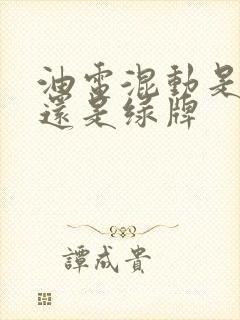 油電混動是
還是绿牌
譚成貴